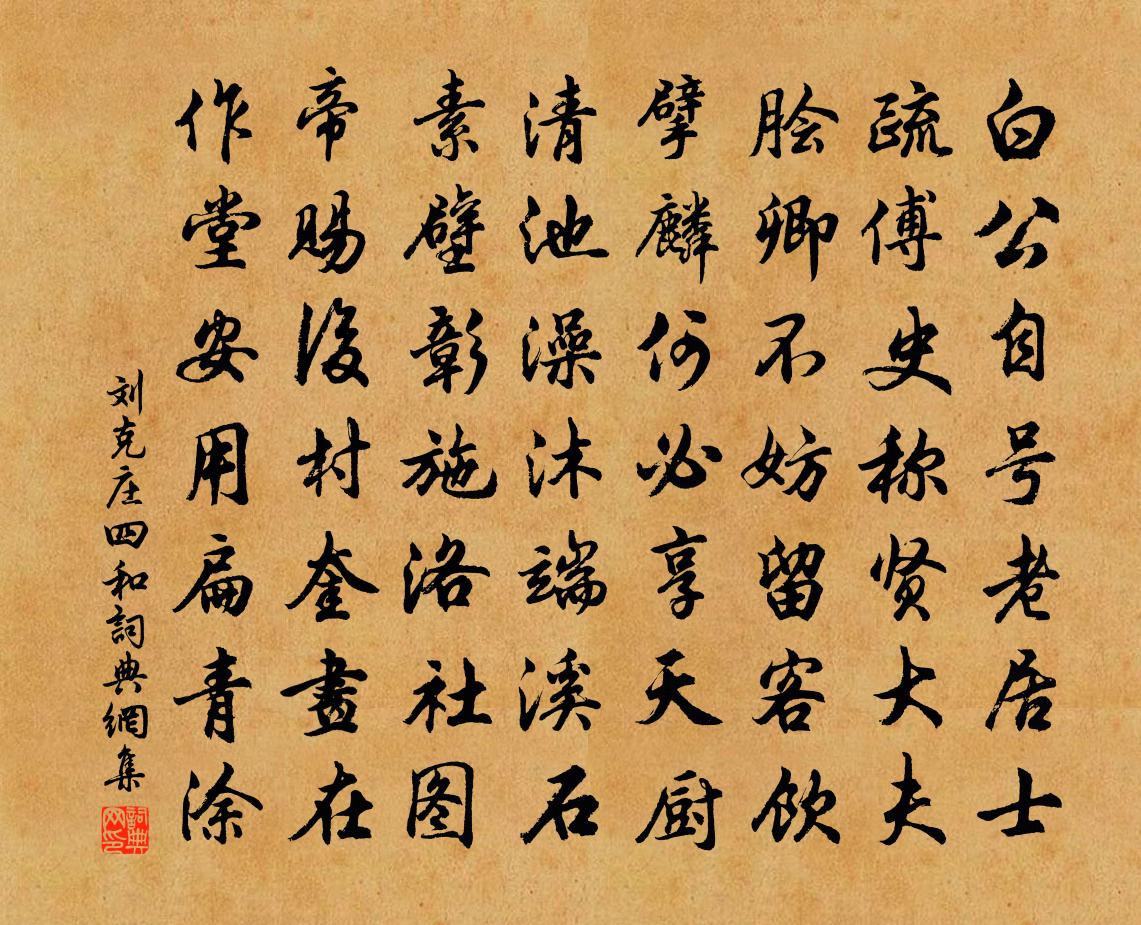 白公自号老居士
疏傅史称贤大夫
脍卿不妨留客饮
擘麟何必享天厨
清池澡沐端溪石
素壁彰施洛社图
帝赐後村奎畫在
作堂安用扁青涂
刘克庄四和詞典網集
詞典網印